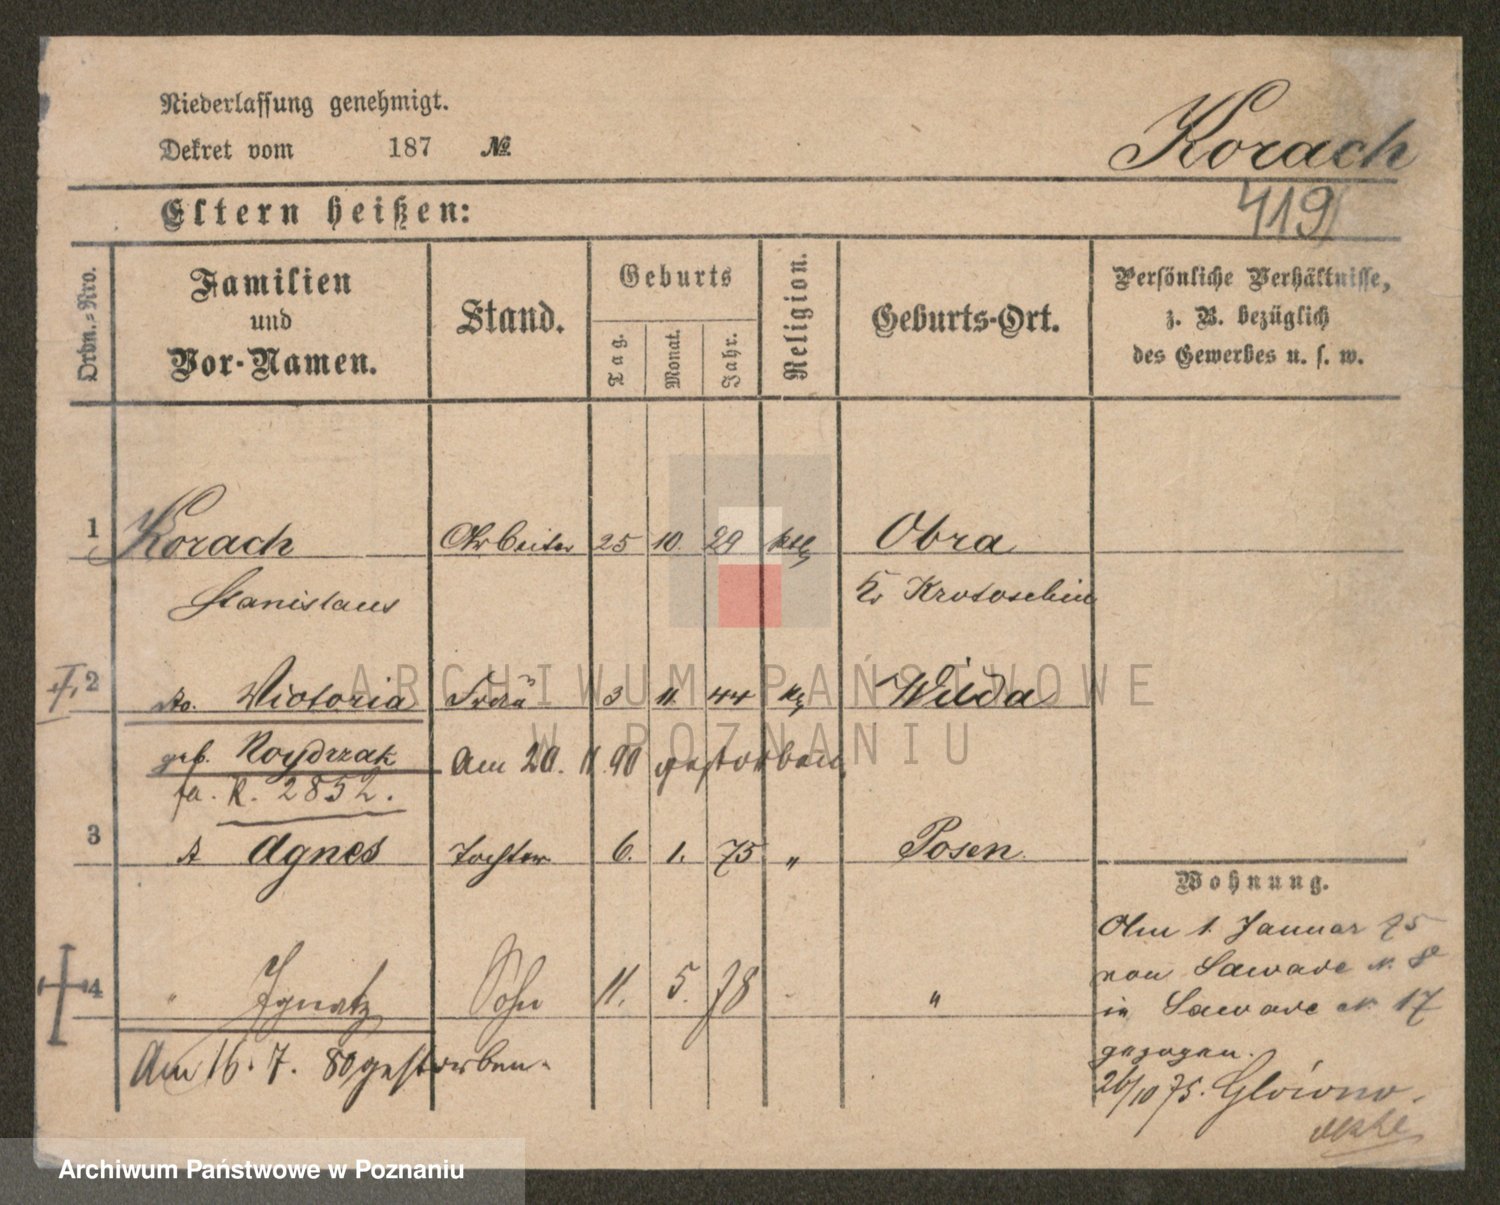 Niederlassung genehmigt.
Dekret vom 187 №
Korach
419
Eltern heißen:
Ordn.-Nro.
Familien und Vor-Namen.
Stand.
Geburts
Tag.
Monat.
Jahr.
Religion.
Geburts-Ort.
Persönliche Verhältnisse,
z. B. bezüglich
des Gewerbes u. s. w.
1 Korach Arbeiter 25 10. 29 kth Obra
Stanislaus Kr Krotoschin
2 Victoria Frau 3 11. 44 Wilda
geb. Noydrzak Am 20. 11. 90 gestorben.
fa. K. 2852.
3 Agnes Tochter 6. 1. 75 " Posen
Wohnung.
Am 1. Januar 75
von Sawade N. 8
in Sawade N. 17
gezogen.
26/10 75. Glówno.
4 " Ignatz Sohn 11. 5. 78 "
Am 16. 7. 80 gestorben.
ARCHIWUM PAŃSTWOWE
W POZNANIU
Archiwum Państwowe w Poznaniu